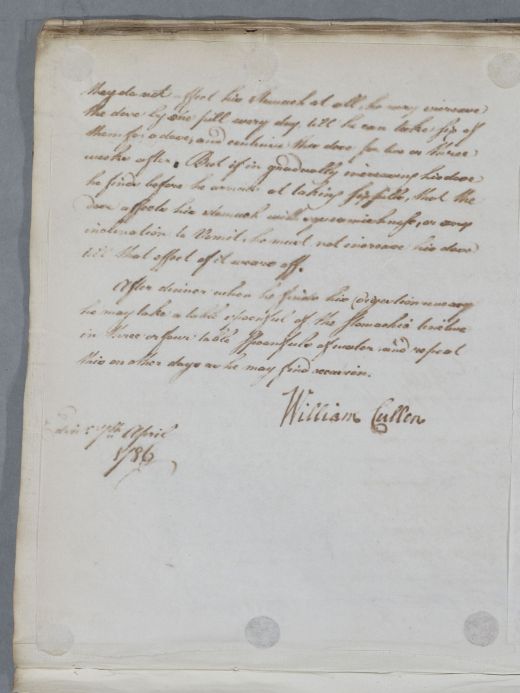 they do not affect his Stomach at all, he may increase
the dose by one pill every day, till he can take six of
them for a dose, and continue that dose for two or three
weeks after. But if in gradually increasing his dose
he finds before he arrives at taking six pills, that the
dose affects his stomach with squeamishness, or any
inclination to Vomit, he must not increase his dose
till that effect of it wears off.
After dinner when he finds his digestion uneasy
he may take a table spoonful of the Stomachic tincture
in three or four table Spoonfuls of water and repeat
this on other days as he may find occasion.
William Cullen
Edinr 7th April
1786